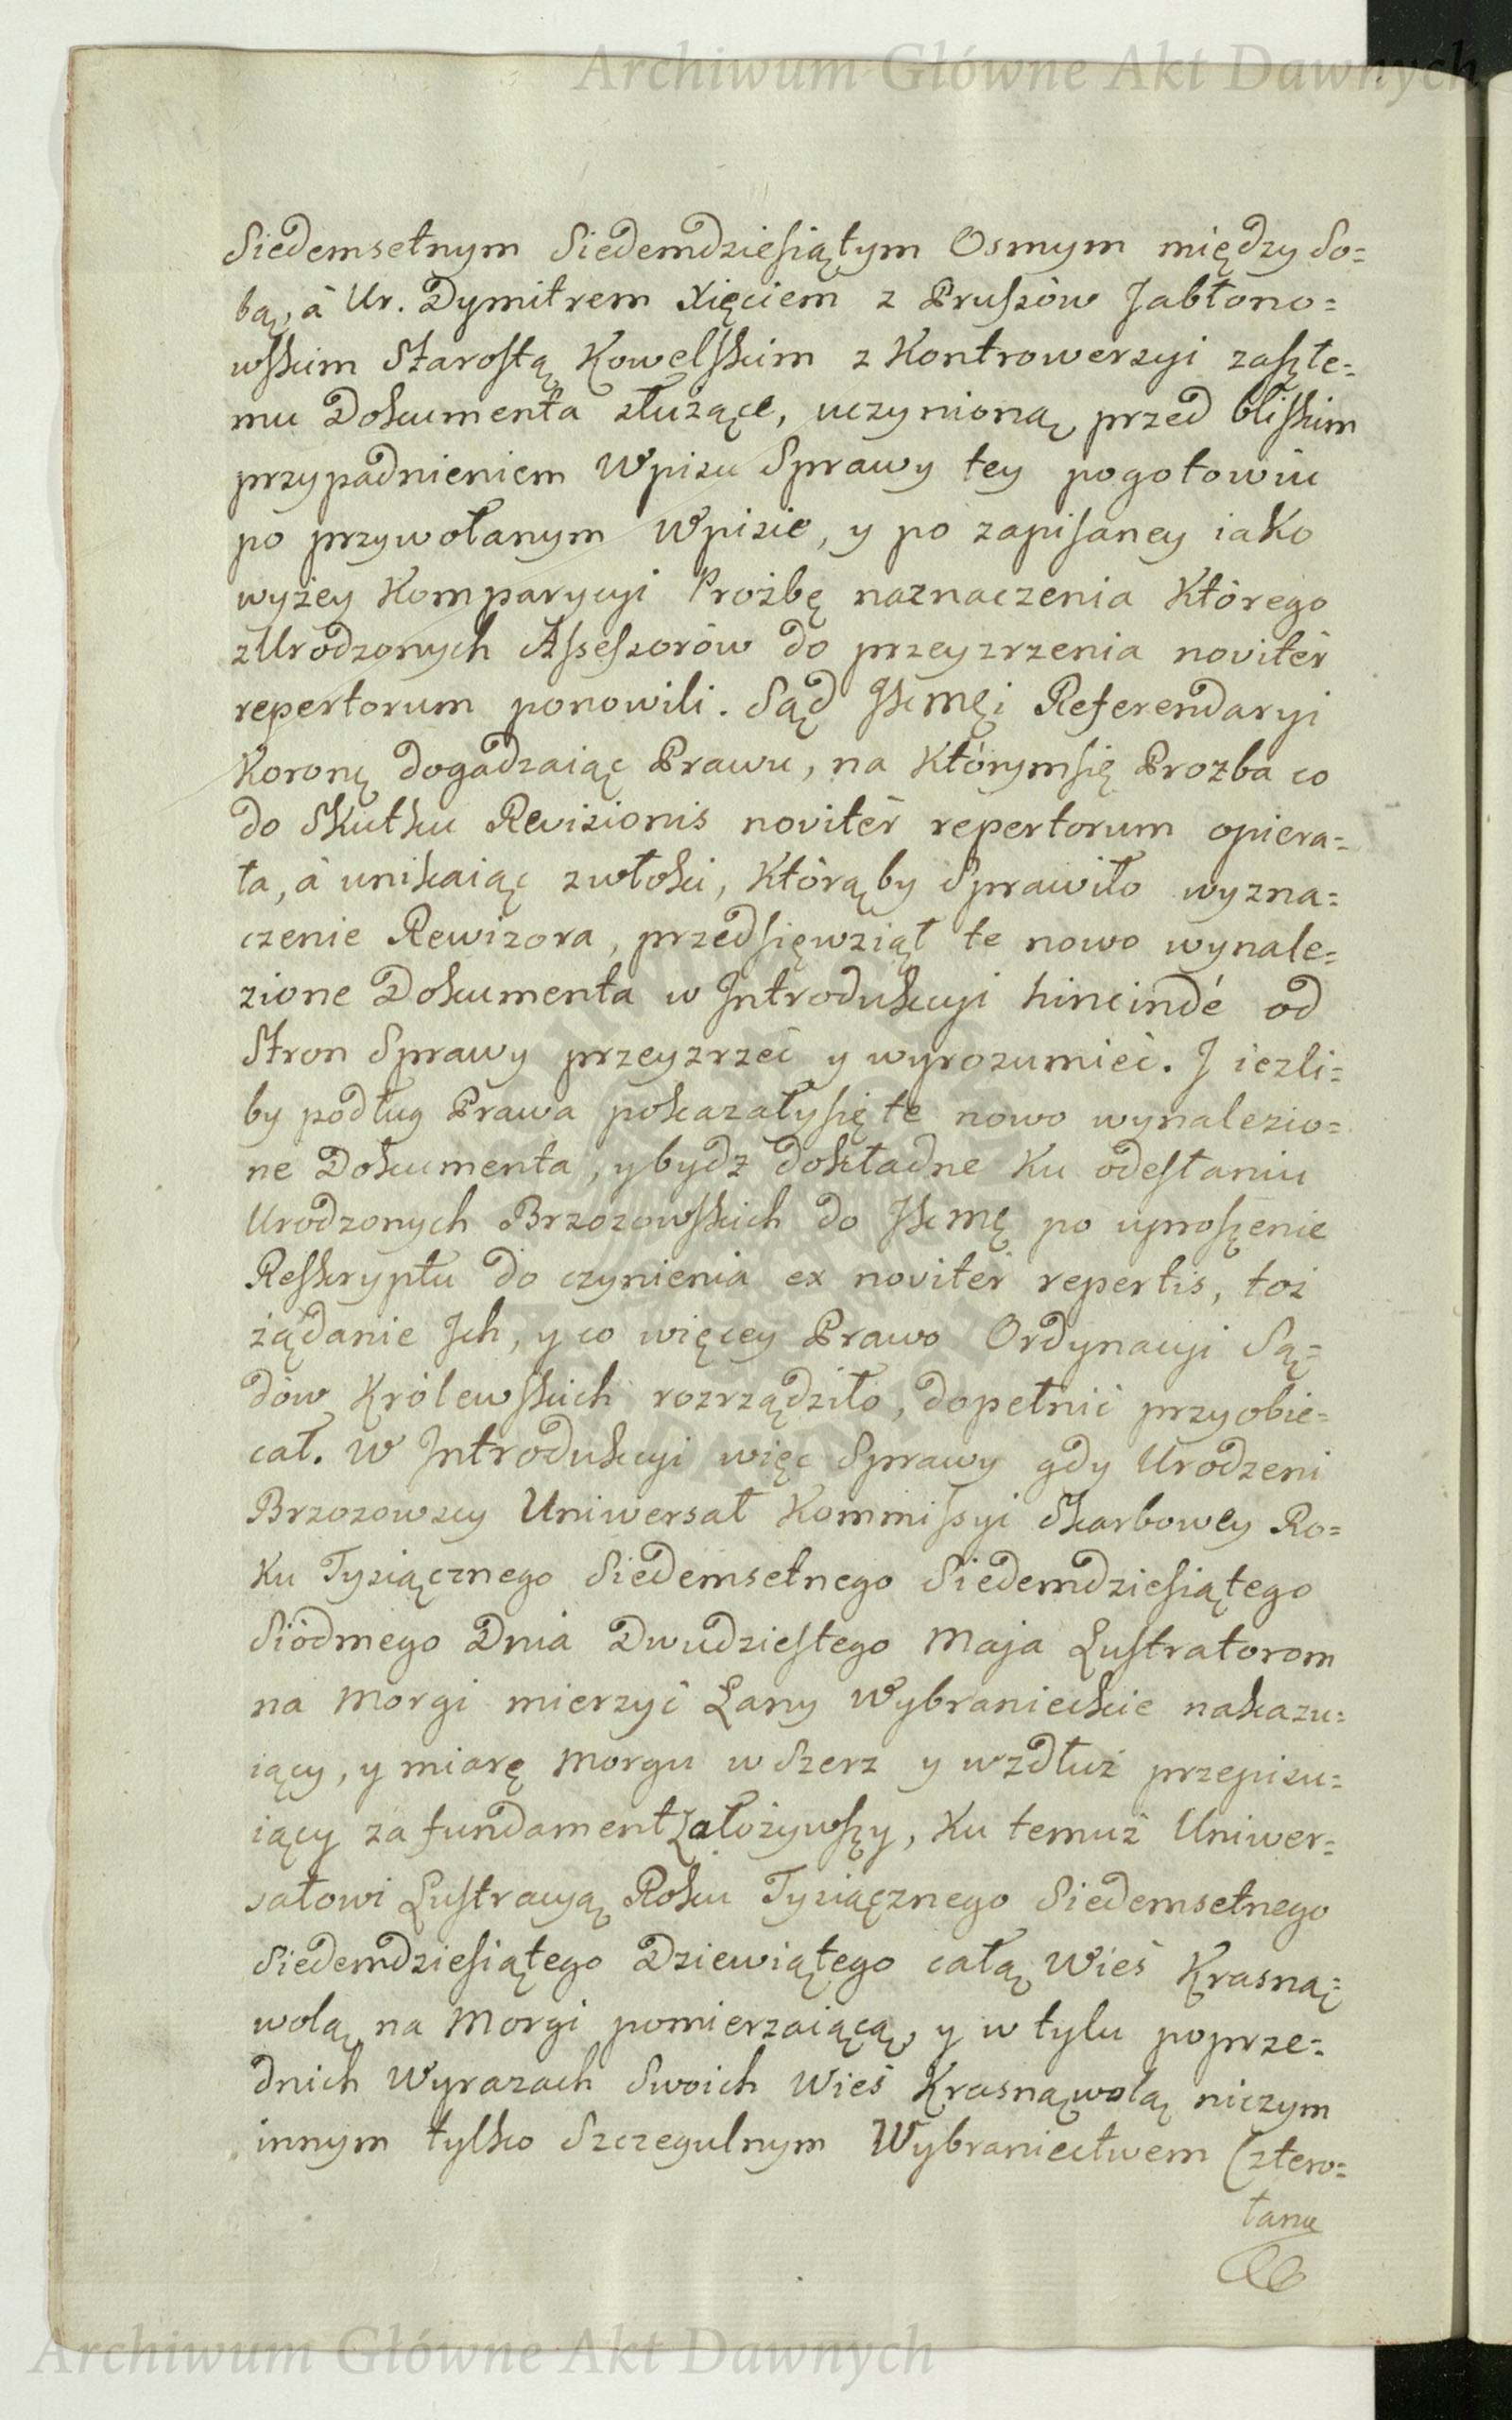 Archiwum Główne Akt Dawnych
Siedemsetnym Siedemdziesiątym Osmym między So=
bą, á Ur. Dymitrem Xięciem z Pruszów Jabłono=
wskim Starostą Kowelskim z Kontrowerzyi zaszłe=
mu Dokumenta służące, uczynioną przed bliskim
przypadnieniem Wpisu Sprawy tey pogotowiu
po przywołanym Wpisie, y po zapisaney iako
wyżey Komparycyi Prożbę naznaczenia Którego
z Urodzonych Assessorów do przeyzrzenia novitèr
repertorum ponowili. Sąd JKMci Referendaryi
Koronę dogadzaiąc Prawu, na Którym się Prozba co
do Skutku Revisionis novitèr repertorum opiera=
ła, á unikaiąc zwłoki, Którąby Sprawiło wyzna=
czenie Rewizora, przedsięwziął te nowo wynale=
zione Dokumenta w Introdukcyi hincindé od
Stron Sprawy przeyzrzeć y wyrozumieć. J iezli=
by podług Prawa pokazały się te nowo wynalezio=
ne Dokumenta, y bydz dokładne Ku odesłaniu
Urodzonych Brzozowskich do JKMę po uproszenie
Reskryptu do czynienia ex novitèr repertis, toż
żądanie Jch, y co więcey Prawo Ordynacyi Są=
dów Królewskich rozrządziło, dopełnić przyobie=
cał. W Introdukcyi więc Sprawy gdy Urodzeni
Brzozowscy Uniwersał Kommissyi Skarbowey Ro=
Ku Tysiącznego Siedemsetnego Siedemdziesiątego
Siódmego Dnia Dwudziestego Maja Lustratorom
na Morgi mierzyć Łany Wybranieckie nakazu=
iący, y miarę Morgu w Szerz y wzdłuż przepisu=
iący za fundament Założywszy, Ku temuż Uniwer=
sałowi Lustracyą Roku Tysiącznego Siedemsetnego
Siedemdziesiątego Dziewiątego całą Wieś Krasną=
wolą na Morgi pomierzaiącą, y w tylu poprze=
dnich Wyrazach Swoich Wieś Krasnąwolą niczym
innym tylko Szczegulnym Wybraniectwem Cztero=
łanu
Archiwum Główne Akt Dawnych